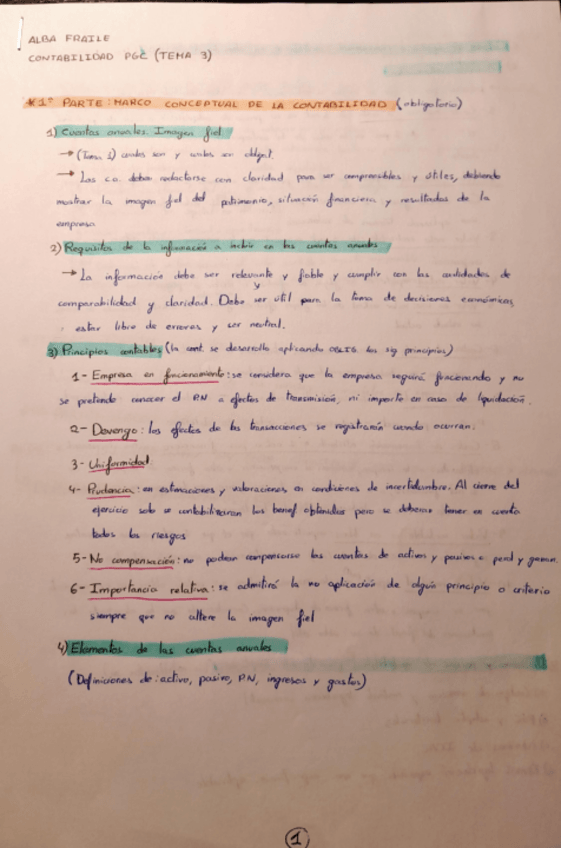 ALBA FRAILE
CONTABILIDAD PGC (TEMA 3)
*1º PARTE: MARCO CONCEPTUAL DE LA CONTABILIDAD (obligatorio)
1) Cuentas anuales. Imagen fiel
→ (Tema 2) cuales son y cuales son obligat.
→ Las c.a. deben redactarse con claridad para ser comprensibles y útiles, debiendo
mostrar la imagen fiel del patrimonio, situación financiera y resultados de la
empresa
2) Requisitos de la información a incluir en las cuentas anuales
→ La información debe ser relevante y fiable y cumplir con las cualidades de
comparabilidad y claridad. Debe ser útil para la toma de decisiones económicas,
estar libre de errores y ser neutral.
3) Principios contables (la cont. se desarrolla aplicando OBLIG. los sig principios)
1- Empresa en funcionamiento: se considera que la empresa seguirá funcionando y no
se pretende conocer el PN a efectos de transmisión, ni importe en caso de liquidación.
2- Devengo: los efectos de las transacciones se registrarán cuando ocurran.
3- Uniformidad
4- Prudencia: en estimaciones y valoraciones en condiciones de incertidumbre. Al cierre del
ejercicio solo se contabilizaran los benef obtenidos pero se deberán tener en cuenta
todos los riesgos
5- No compensación: no podrán compensarse las cuentas de activos y pasivos o perd y ganan.
6- Importancia relativa: se admitirá la no aplicación de algún principio o criterio
siempre que no altere la imagen fiel
4) Elementos de las cuentas anuales
(Definiciones de: activo, pasivo, PN, ingresos y gastos)
1